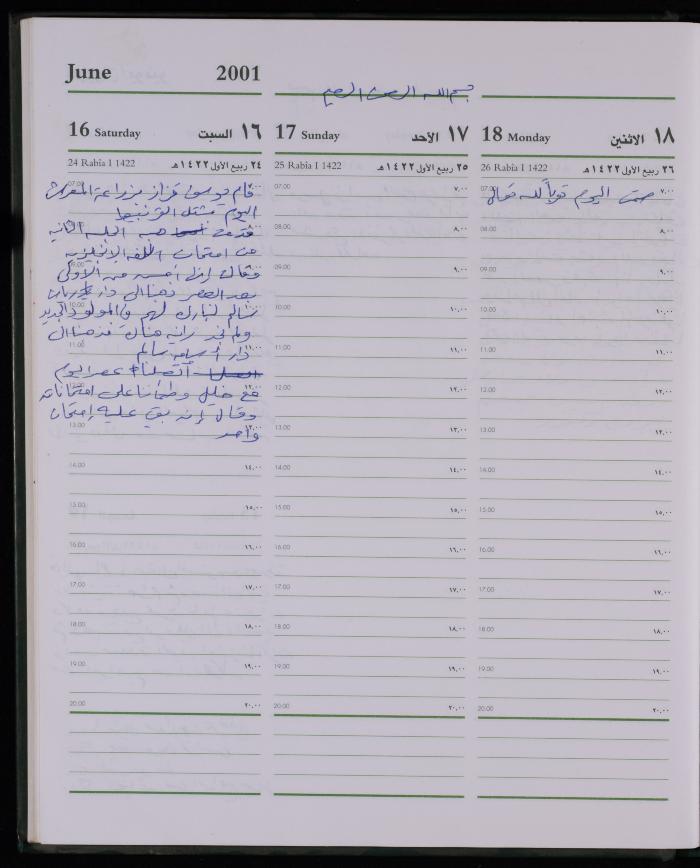 June 2001
بسم الله الرحمن الرحيم
16 Saturday السبت ١٦
24 Rabia I 1422 ٢٤ ربيع الأول ١٤٢٢هـ
قام موسى قزاز بزراعة المفرش
اليوم مشتل القرنبيط
قدمت هبه الجلسه الثانيه
من امتحان اللغه الإنجليزيه
وقالت إنها أحسن من الأولى
بعد العصر ذهبنا الى دار
سالم لنبارك لهم في المولود الجديد
ولم نجد رانيه هناك فذهبنا الى
دار أسامه سالم
اتصلنا عصر اليوم
مع خليل وطمأننا على امتحاناته
وقال إنه بقي عليه إمتحان
واحد
07.00
08.00
09.00
10.00
11.00
12.00
13.00
14.00 ١٤,٠٠
15.00 ١٥,٠٠
16.00 ١٦,٠٠
17.00 ١٧,٠٠
18.00 ١٨,٠٠
19.00 ١٩,٠٠
20.00 ٢٠,٠٠
17 Sunday الأحد ١٧
25 Rabia I 1422 ٢٥ ربيع الأول ١٤٢٢هـ
07.00 ٧,٠٠
08.00 ٨,٠٠
09.00 ٩,٠٠
10.00 ١٠,٠٠
11.00 ١١,٠٠
12.00 ١٢,٠٠
13.00 ١٣,٠٠
14.00 ١٤,٠٠
15.00 ١٥,٠٠
16.00 ١٦,٠٠
17.00 ١٧,٠٠
18.00 ١٨,٠٠
19.00 ١٩,٠٠
20.00 ٢٠,٠٠
18 Monday الاثنين ١٨
26 Rabia I 1422 ٢٦ ربيع الأول ١٤٢٢هـ
صمت اليوم قربة لله تعالى
07.00 ٧,٠٠
08.00 ٨,٠٠
09.00 ٩,٠٠
10.00 ١٠,٠٠
11.00 ١١,٠٠
12.00 ١٢,٠٠
13.00 ١٣,٠٠
14.00 ١٤,٠٠
15.00 ١٥,٠٠
16.00 ١٦,٠٠
17.00 ١٧,٠٠
18.00 ١٨,٠٠
19.00 ١٩,٠٠
20.00 ٢٠,٠٠